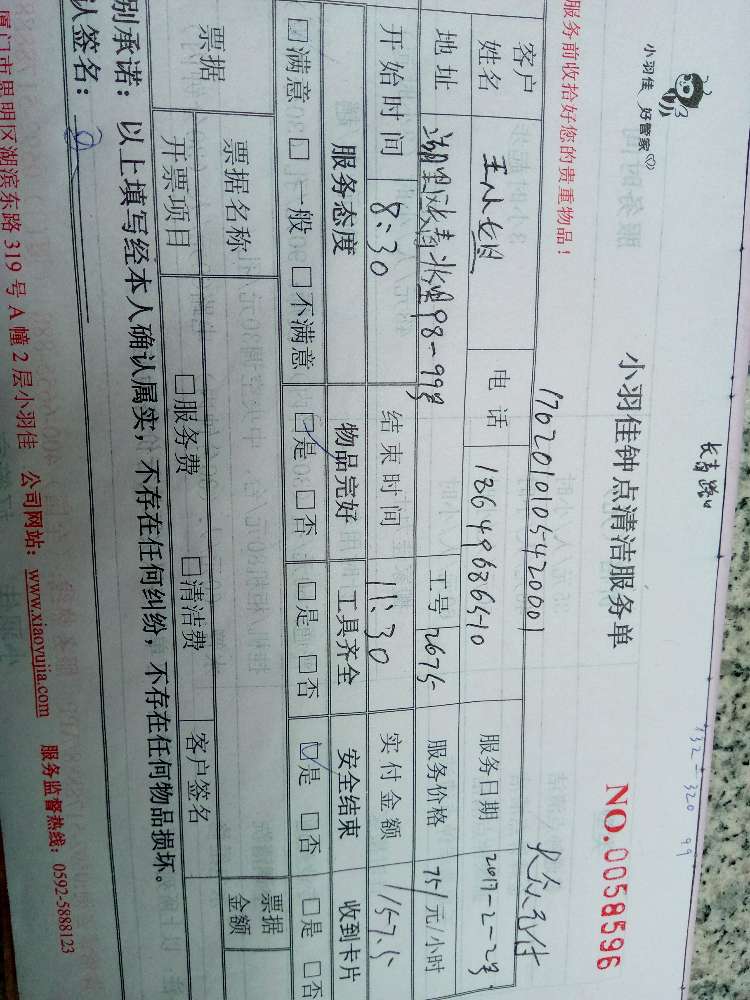 长青路口
小羽佳 好管家
小羽佳钟点清洁服务单
NO.0058596
服务前收拾好您的贵重物品！
1762010105420001
大众点评
客户姓名 王小姐 电话 18649686540 服务日期
地址 98-99号 工号 2675 服务价格 75/元/小时
开始时间 8:30 结束时间 11:30 实付金额 157.5
服务态度 物品完好 工具齐全 安全结束 收到卡片
☑满意 □一般 □不满意 ☑是 □否 □是 □否 ☑是 □否 □是 □否
票据 票据名称 票据金额
开票项目 □服务费 □清洁费 客户签名
别承诺：以上填写经本人确认属实，不存在任何纠纷，不存在任何物品损坏。
认签名：
厦门市思明区湖滨东路 319 号 A 幢 2 层小羽佳 公司网站：www.xiaoyujia.com 服务监督热线：0592-5888123